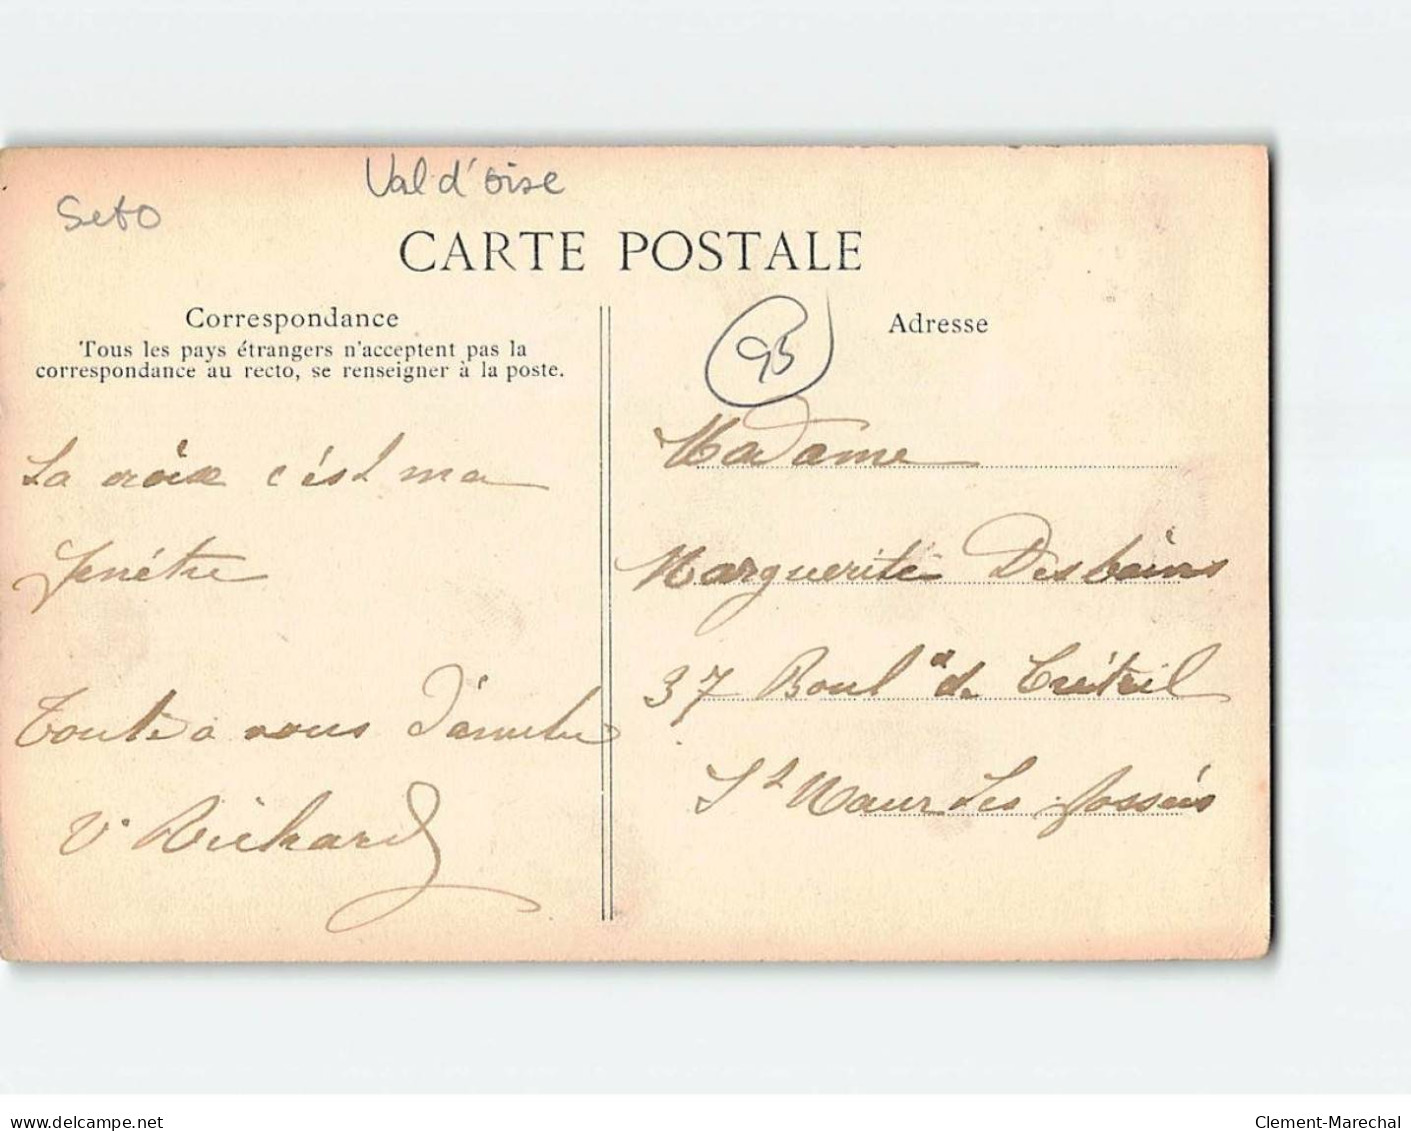 Val d'oise
Seto
CARTE POSTALE
Correspondance
Tous les pays étrangers n'acceptent pas la
correspondance au recto, se renseigner à la poste.
La croix c'est ma
fenêtre
Toute a vous d'amitié
V. Richard
95
Adresse
Madame
Marguerite Desbains
37 Boul d de Créteil
St Maur Les fossés
www.delcampe.net
Clement-Marechal